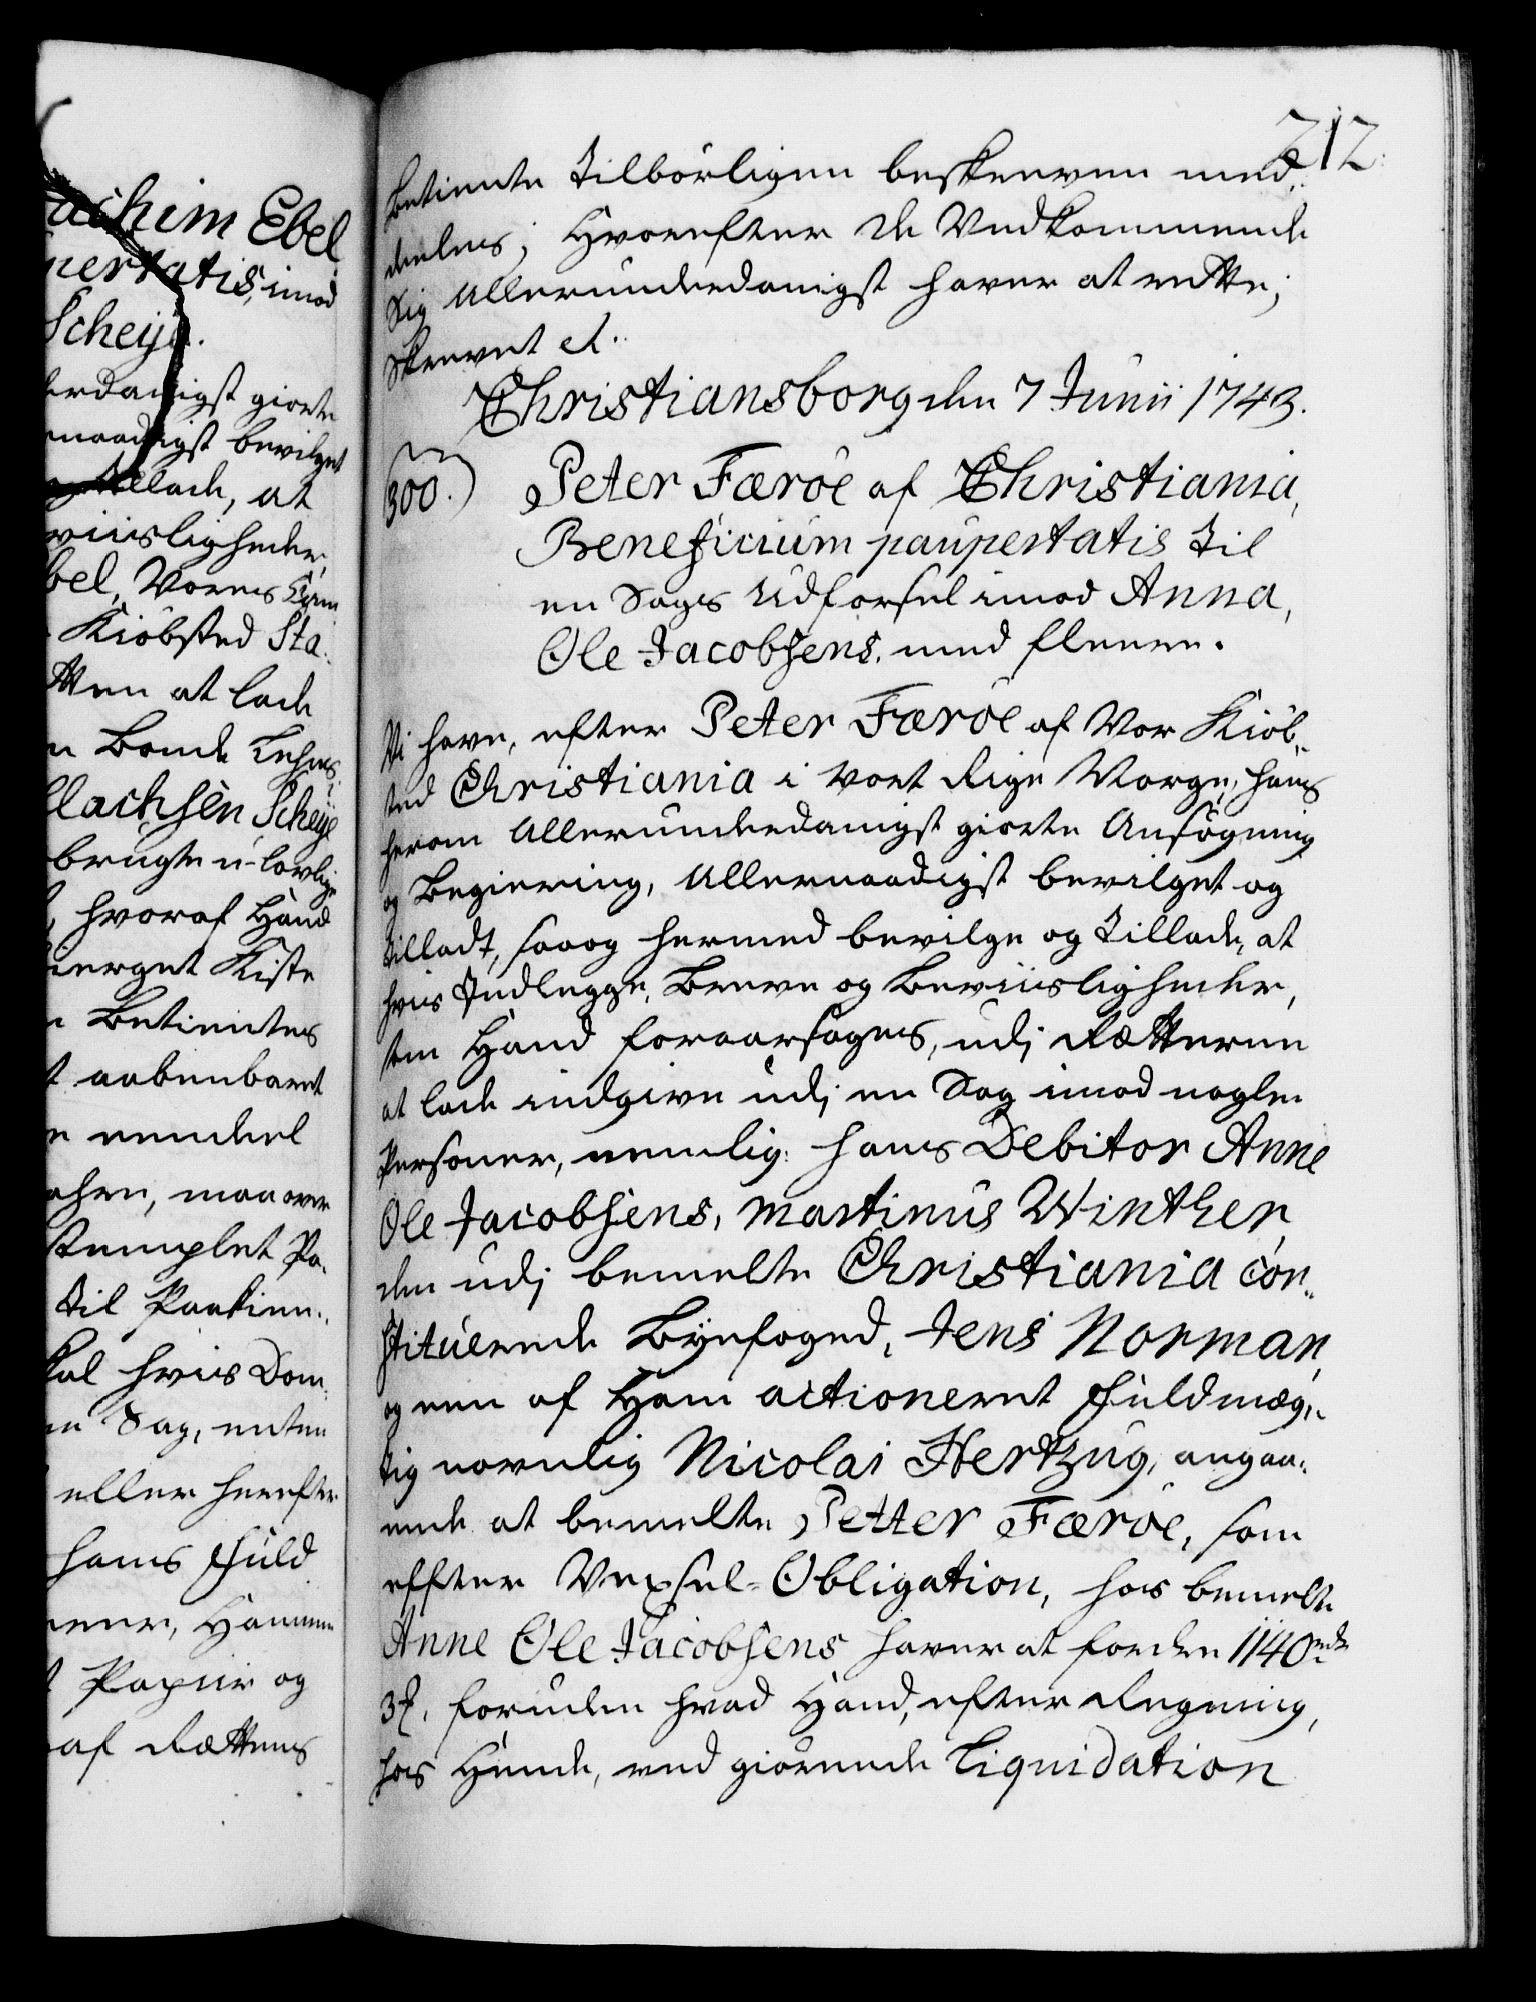 achim Ebel
pertatis, imod
Scheye.
erdanigst giorte
ernaadigst bevilget
og tillade, at
eviisligheder,
bel, Vores
Kiöbsted Sta-
tten at lade
n Bonde Lehns
llachsen Scheye
brugte u-lovlige
, hvoraf Hand
Kiste
Betientes
t aabenbaret
e eendeel
maa over
stemplet Pa-
til Paakien-
kal hvis Dom
n Sag, enten
eller herefter
hans Fuld
Hannem
t Papiir og
af Rettens
212.
betiente tilbörligen beskreven med-
deeles; Hvorefter de Vedkommende
Sig Allerunderdanigst haver at rette;
Skrevet et.
Christiansborg den 7 Junii 1743.
300.) Peter Færöe af Christiania,
Beneficium paupertatis til
en Sags Udförsel imod Anna,
Ole Jacobsens, med fleere.
Vi have, efter Peter Færöe af Vor Kiöb-
sted Christiania i Vort Rige Norge, hans
herom Allerunderdanigst giorte Ansögning
og Begiering, Allernaadigst bevilget og
tilladt, saaog hermed bevilge og tillade, at
hvis Indlegge, Breve og Beviisligheder,
som Hand foraarsages, udi Rætterne
at lade indgive udi en Sag imod nogle
Personer, nemlig: hans Debitor Anne
Ole Jacobsens, Martinus Winther,
den udi bemelte Christiania con-
stituerede Byefoged, Jens Norman,
og een af Ham actioneret Fuldmæg-
tig navnlig Nicolai Hertzug, angaa-
ende at bemelte Petter Færöe, som
effter Vexsel-Obligation, hos bemelte
Anne Ole Jacobsens haver at fordre 1140 rdr
3 ß. foruden hvad Hand, efter Regning,
hos Hende, ved giörende Liquidation